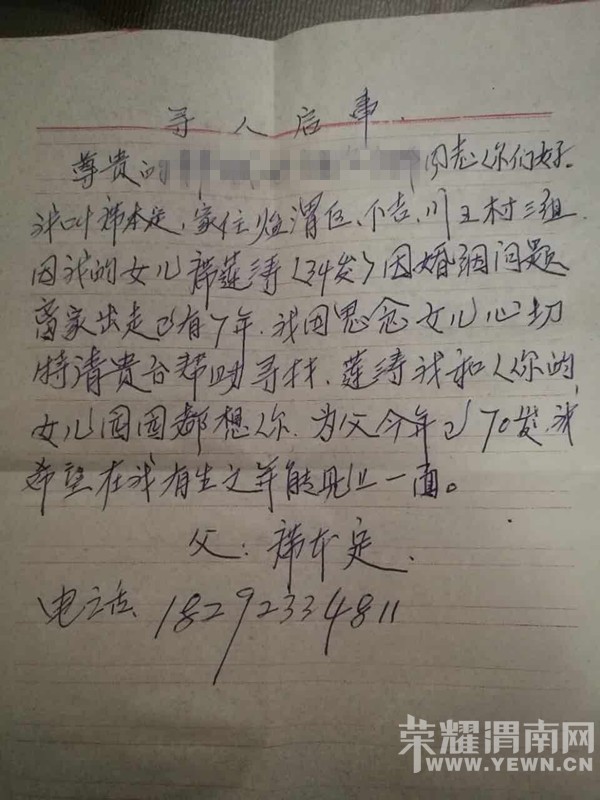 寻人启事.
尊贵的 同志们你们好.
我叫 本定,家住临渭区、下吉、川王村三组.
因我的女儿 莲涛(34岁)因婚姻问题
离家出走已有7年.我因思念女儿心切
特请贵台帮助寻找.莲涛我和你的
女儿园园都想你.为父今年已70岁.我
希望在我有生之年能见上一面。
父: 本定.
电话.18292334811
荣耀渭南网
WWW.YEWN.CN